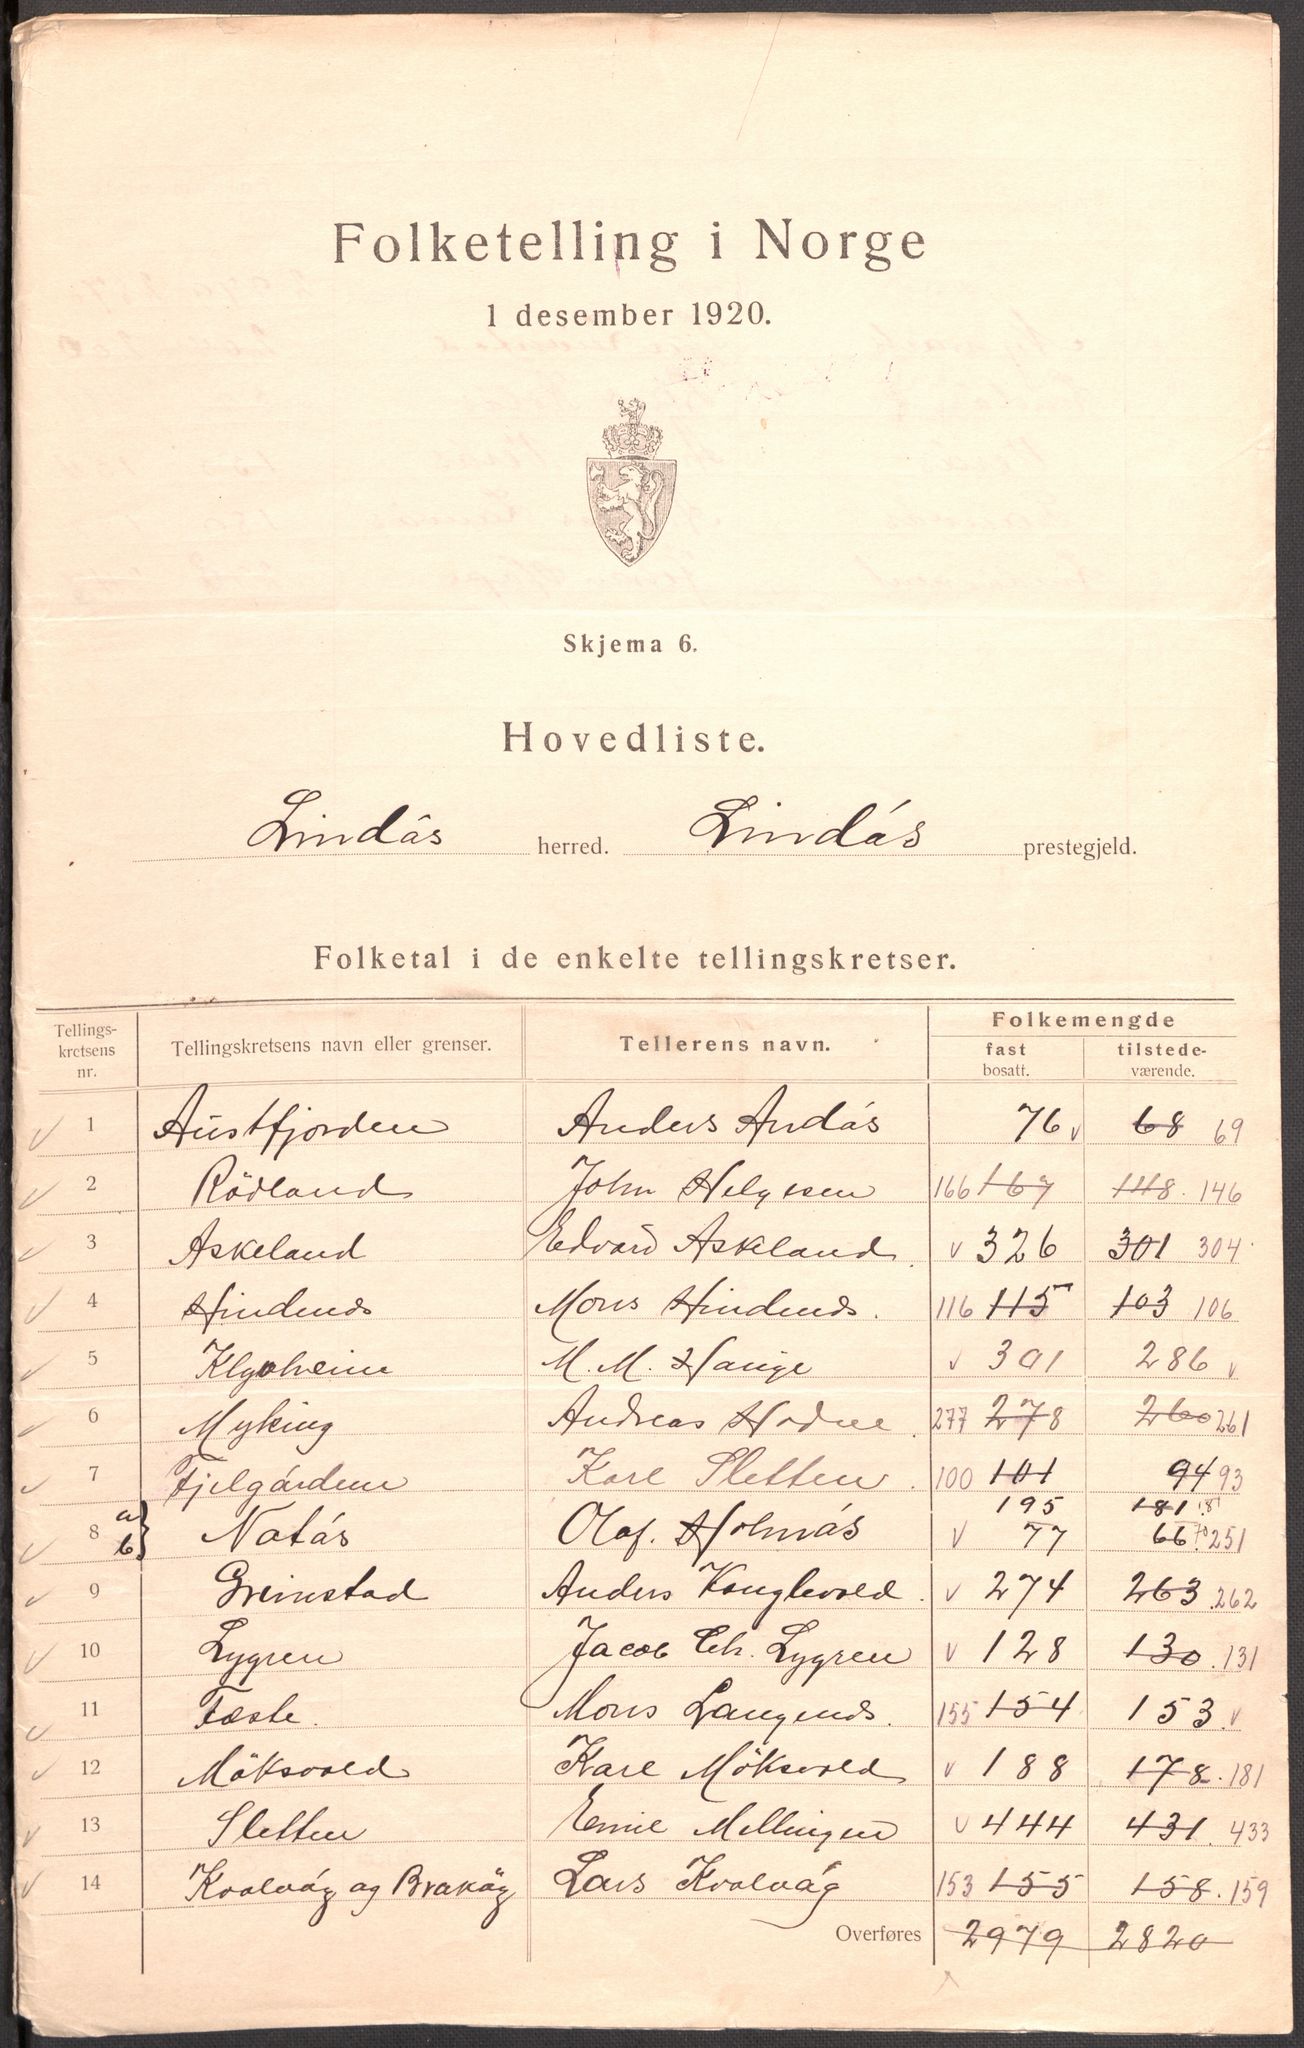 Folketelling i Norge
1 desember 1920.
Skjema 6.
Hovedliste.
Lindås herred. Lindås prestegjeld.
Folketal i de enkelte tellingskretser.
Tellings-kretsens nr. Tellingskretsens navn eller grenser. Tellerens navn. Folkemengde
fast bosatt. tilstede-værende.
√ 1 Austfjorden Anders Andås 76 √ 68 69
√ 2 Rödland John Helgesen 166 167 148. 146
√ 3 Askeland Edvard Askeland. √ 326 301 304
√ 4 Hindenes Mons Hindenes. 116 115 103 106
√ 5 Klyvheim M. M. Hauge √ 301 286 √
√ 6 Myking Andreas Hodne. 277 278 260 261
√ 7 Fjelgården Karl Sletten. 100 101 94 93
a 195 181 181
√ 8 b} Natås Olaf. Holmås √ 77 66 70 251
√ 9 Greinstad Anders Konglevold. √ 274 263. 262
√ 10 Lygren Jacob Ch. Lygren √ 128 130. 131
√ 11 Fæste. Mons Langenes. 155 154 153. √
√ 12 Möksvold Karl Möksvold √ 188 178. 181
√ 13 Sletten Emil Mellingen √ 444 431. 433
√ 14 Kvalvåg og Brakåg Lars Kvalvåg 153 155 158. 159
Overføres 2979 2820